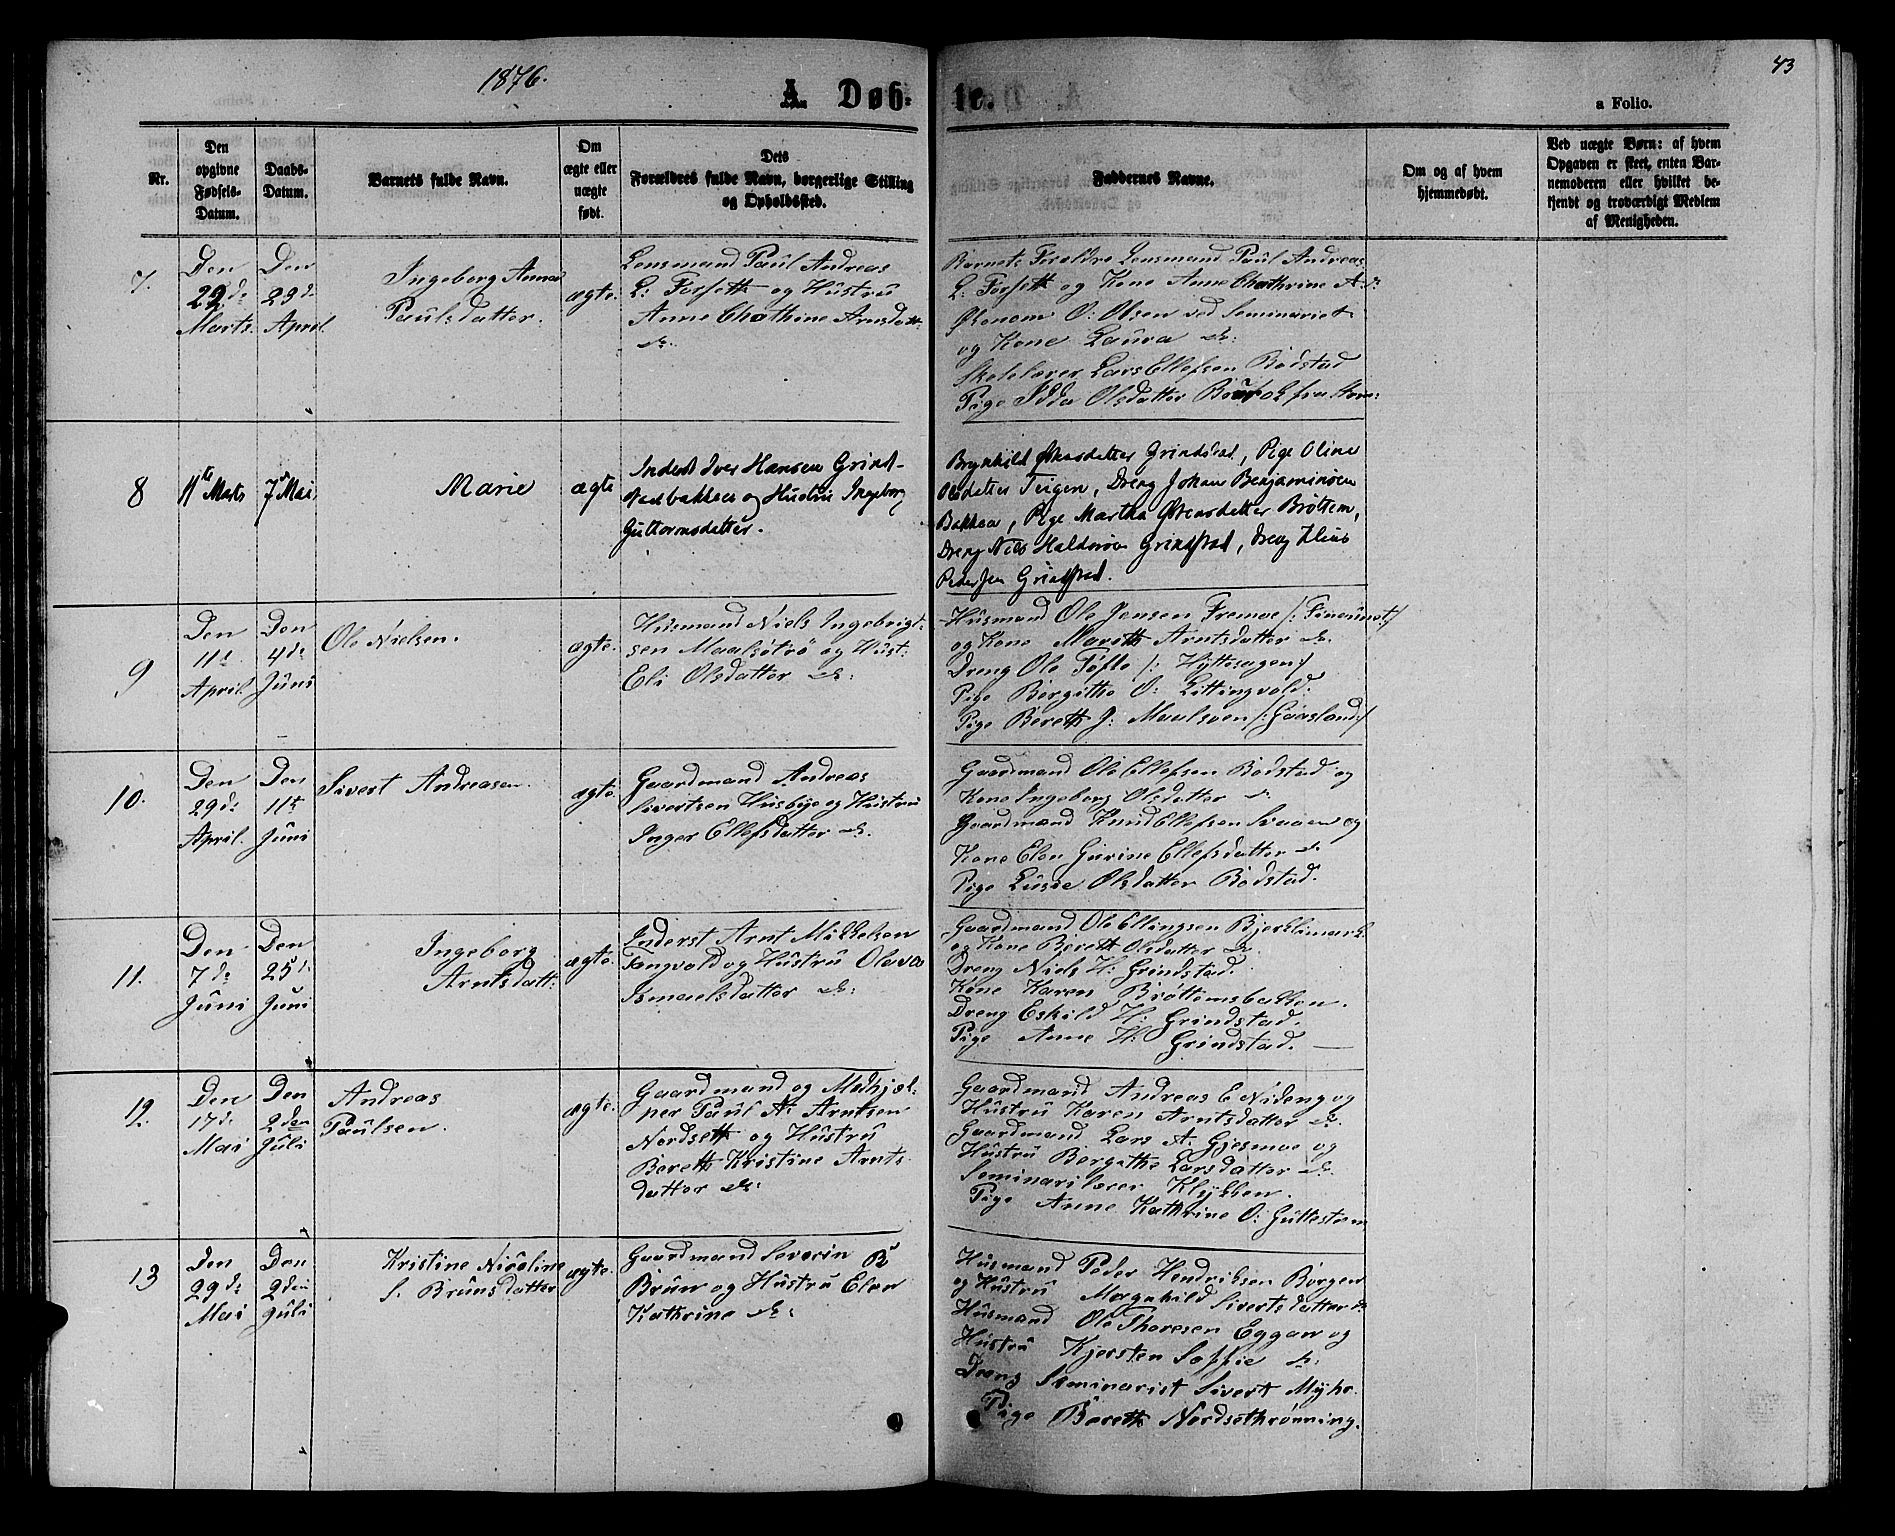 1876.
A. Døb-
te.
43
a Folio.
Nr.
Den opgivne Fødsels-Datum.
Daabs-Datum.
Barnets fulde Navn.
Om ægte eller uægte født.
Dets
Forældres fulde Navn, borgerlige Stilling
og Opholdssted.
Faddernes Navne.
Om og af hvem
hjemmedøbt.
Ved uægte Børn: af hvem
Opgaven er skeet, enten Bar-
nemoderen eller hvilket be-
kjendt og troværdigt Medlem
af Menigheden.
7.
Den
22de
Marts.
Den
29de
April.
Ingeborg Anna
Paulsdatter.
ægte.
Lensmand Paul Andreas
L: Forseth og Hustru
Anne Chathine Arnsdatt.
do.
Barnets Foreldre Lensmand Paul Andreas
L: Forseth og Kone Anne Chathrine A. do
Økonom O: Olsen ved Seminariet
og Kone Laura do:
Skolelærer Lars Ellefsen Bødstad
Pige Idda Olsdatter
8
11te Marts
7d Mai
Marie
ægte
Inderst Iver Hansen Grind-
stadbakken og Hustru Ingeborg
Guttormsdatter.
Brynhild Grindstad, Pige Oline
Olsdatter Teigen, Dreng Johan Benjaminsen
Bakken, Pige Martha Brøttem,
Dreng Nils Haldosen Grindstad, Dreng
Pedersen Grindstad.
9
Den
11te
April.
Den
4de
Juni
Ole Nielsen.
ægte.
Husmand Niels Ingebrigt-
sen Maalsøtrø og Hust:
Eli Olsdatter do:
Husmand Ole Jensen Fremoe
og Kone Mareth Arntsdatter do.
Dreng Ole Tøfte /: Hyttesagen:/
Pige Bergithe O: Littingvold:
Pige Bereth J: Maulsøen /: Gaasland:/
10.
Den
29de
April.
Den
11te
Juni
Sivert Andreasen.
ægte.
Gaardmand Andreas
Sivertsen Husbye og Hustru
Inger Ellefsdatter do.
Gaardmand Ole Ellefsen Bødstad og
Kone Ingeborg Olsdatter do
Gaardmand Knud Ellefsen Svaaen og
Kone Elen Gurine Ellefsdatter do
Pige Lusie Olsdatter Bødstad.
11.
Den
7de
Juni
Den
25de
Juni
Ingeborg
Arntsdatt:
ægte.
Inderst Arnt Mikkelsen
Tangvold og Hustru Olava
Ismaelsdatter do:
Gaardmand Ole Ellingsen Bjerklimark
og Kone Bereth Olsdatter do.
Dreng Niels H: Grindstad.
Kone Karen Brøttemsbakken.
Dreng Eskild H: Grindstad.
Pige Anne H: Grindstad.
12.
Den
17de
Mai
Den
2den
Juli
Andreas
Paulsen.
ægte.
Gaardmand og Medhjæl-
per Paul A: Arntsen
Nordseth og Hustru
Bereth Kristine Arnts
datter do:
Gaardmand Andreas E Nideng og
Hustru Karen Arntsdatter do.
Gaardmand Lars A. Gjesmoe og
Hustru Bergithe Larsdatter do.
Seminarilærer Klykken.
Pige Anne Kathrine O:
13
Den
29de
Mai
Den
2den
Juli
Kristine Nicoline
S. Brunsdatter
ægte.
Gaardmand Severin B
Bruun og Hustru Elen
Kathrine do:
Husmand Peder Hendriksen Borgen
og Hustru Magnhild Sivertsdatter do
Husmand Ole Thoresen Eggan og
Hustru Kjersten Soffie do:
Dreng Seminarist Sivert Myhr.
Pige Bereth Nordsethrønning.